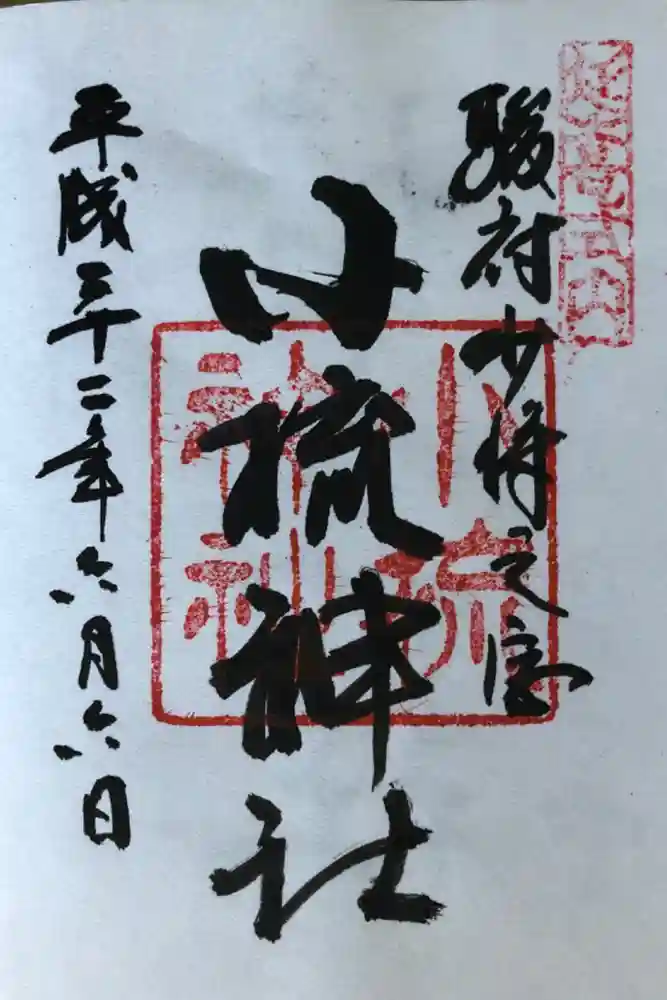 駿府少将之宮
小梳神社
平成三十二年六月六日
小梳
神社